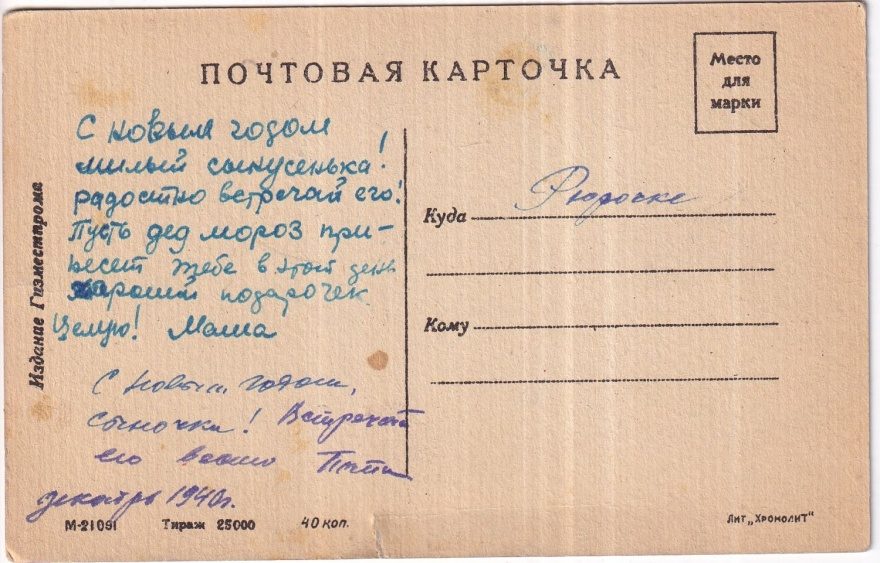 ПОЧТОВАЯ КАРТОЧКА
Место
для
марки
С новым годом
милый сынусенька!
радостно встречай его!
Пусть дед мороз при-
несет тебе в этот день
хороший подарочек
Целую! Мама
С новым годом,
сыночка! Встречай
его весело Папа
декабрь 1940г.
Куда Рюрочке
Кому
Издание Гизместпрома
М-21091 Тираж 25000 40 коп.
ЛИТ „ХРОМОЛИТ"